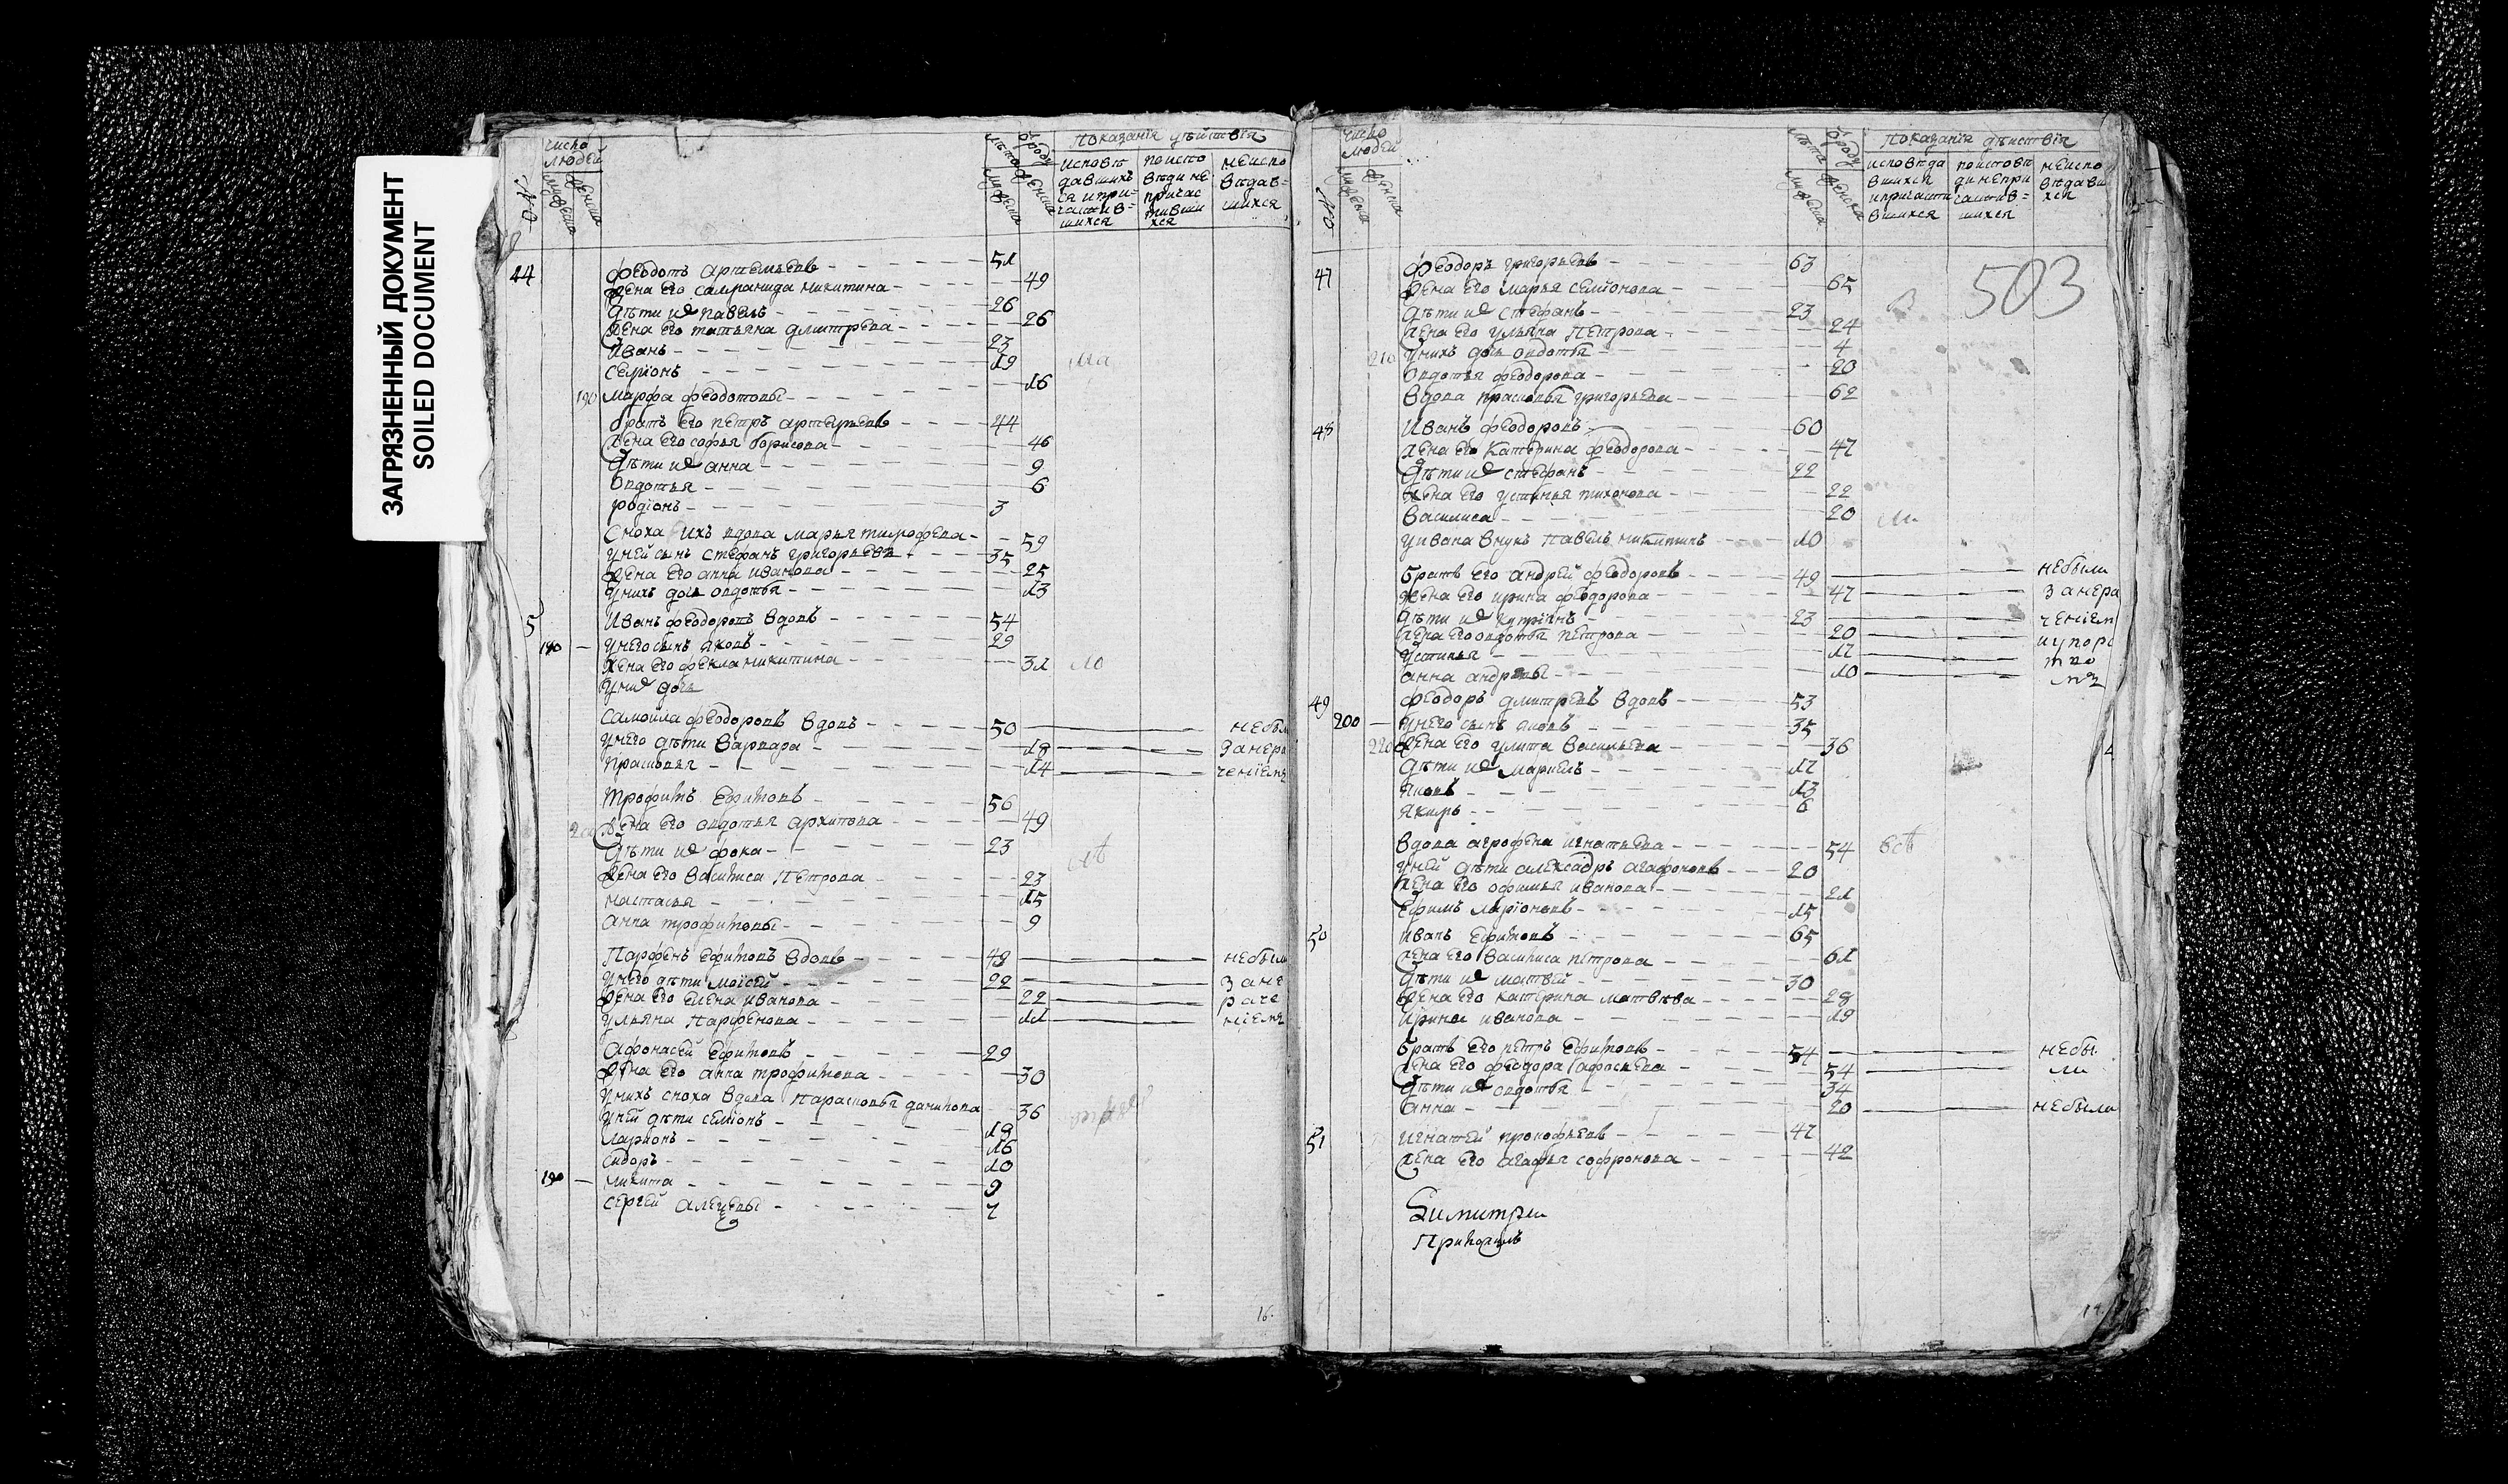 ЗАГРЯЗНЕННЫЙ ДОКУМЕНТ
SOILED DOCUMENT
число людей
№
мужеска
женска
лѣта
ѿ роду
мужеска
женска
показанія дѣйствія
исповѣдавшихся и причастившихся
по исповѣди не причастившихся
не исповѣдавшихся
44 феодотъ артемьевъ 51
жена его никитина 49
дѣти их павелъ 26
жена его татьяна дмитрева 26
Иванъ 23
семіонъ 19
190 марфа феодотовы 16
братъ его петръ артемьевъ 44
жена его софья борисова 46
дѣти их анна 9
овдотья 6
родіонъ 3
сноха ихъ вдова марья тимофева 59
у ней сынъ стефанъ григорьевъ 35
жена его анна иванова 25
у нихъ дочь овдотья 13
5 Иванъ феодоровъ вдовъ 54
180 у него сынъ яковъ 29
жена его фекла никитина 31
у них дочь
самойла феодоровъ вдовъ 50 небыли
у него дѣти варвара 18 за нера
прасковья 14 ченіемъ
трофимъ ефимовъ 56
200 жена его овдотья архипова 49
дѣти их фока 23
жена его василиса петрова 23
настасья 15
анна трофимовы 9
Парфенъ ефимовъ вдовъ 49 небыли
у него дѣти моісей 22 за не
жена его елена иванова 22 раче
ульяна парфенова 11 ніемъ
афонасей ефимовъ 29
жена его анна трофимова 30
у нихъ сноха вдова парасковья данилова 36
у ней дѣти семіонъ 18
ларионъ 16
сидоръ 10
190 никита 9
сергей 7
16.
число людей
№
мужеска
женска
лѣта
ѿ роду
мужеска
женска
показанія дѣиствія
исповѣдавшихся и причастившихся
по исповѣди не причастившихся
не исповѣдавшихся
503
47 феодоръ григорьевъ 63
жена его марья семіонова 65
дѣти их стефанъ 23
жена его ульяна петрова 24
210 у нихъ дочь овдотья 4
овдотья феодорова 20
вдова прасковья григорьева 62
48 Иванъ феодоровъ 60
жена его катерина феодорова 47
дѣти их стефанъ 22
жена его устинья тихонова 22
василиса 20
у ивана внукъ павелъ никитинъ 10
братъ его андрей феодоровъ 49 небыли
жена его ирина феодорова 47 за нера
дѣти их купріянъ 23 ченіем
жена его овдотья петрова 20 и упорс
устинья 17 тво
анна андревы 10 мъ
49 феодоръ дмитревъ вдовъ 53
200 у него сынъ яковъ 35
220 жена его улита васильева 36
дѣти их 17
яковъ 13
якимъ 6
вдова агрофена игнатьева 54
у ней дѣти алексадръ агафоновъ 20
жена его офимья иванова 21
ефимъ ларіоновъ 15
50 иванъ ефимовъ 65
жена его василиса петрова 61
дѣти их матвей 30
жена его катерина матвѣва 28
ирина иванова 19
братъ его петръ ефимовъ 54 небы
жена его феодора 54 ли
дѣти их овдотья 34
анна 20 небыла
51 игнатей прокофьевъ 47
жена его агафья софронова 42
Димитреи